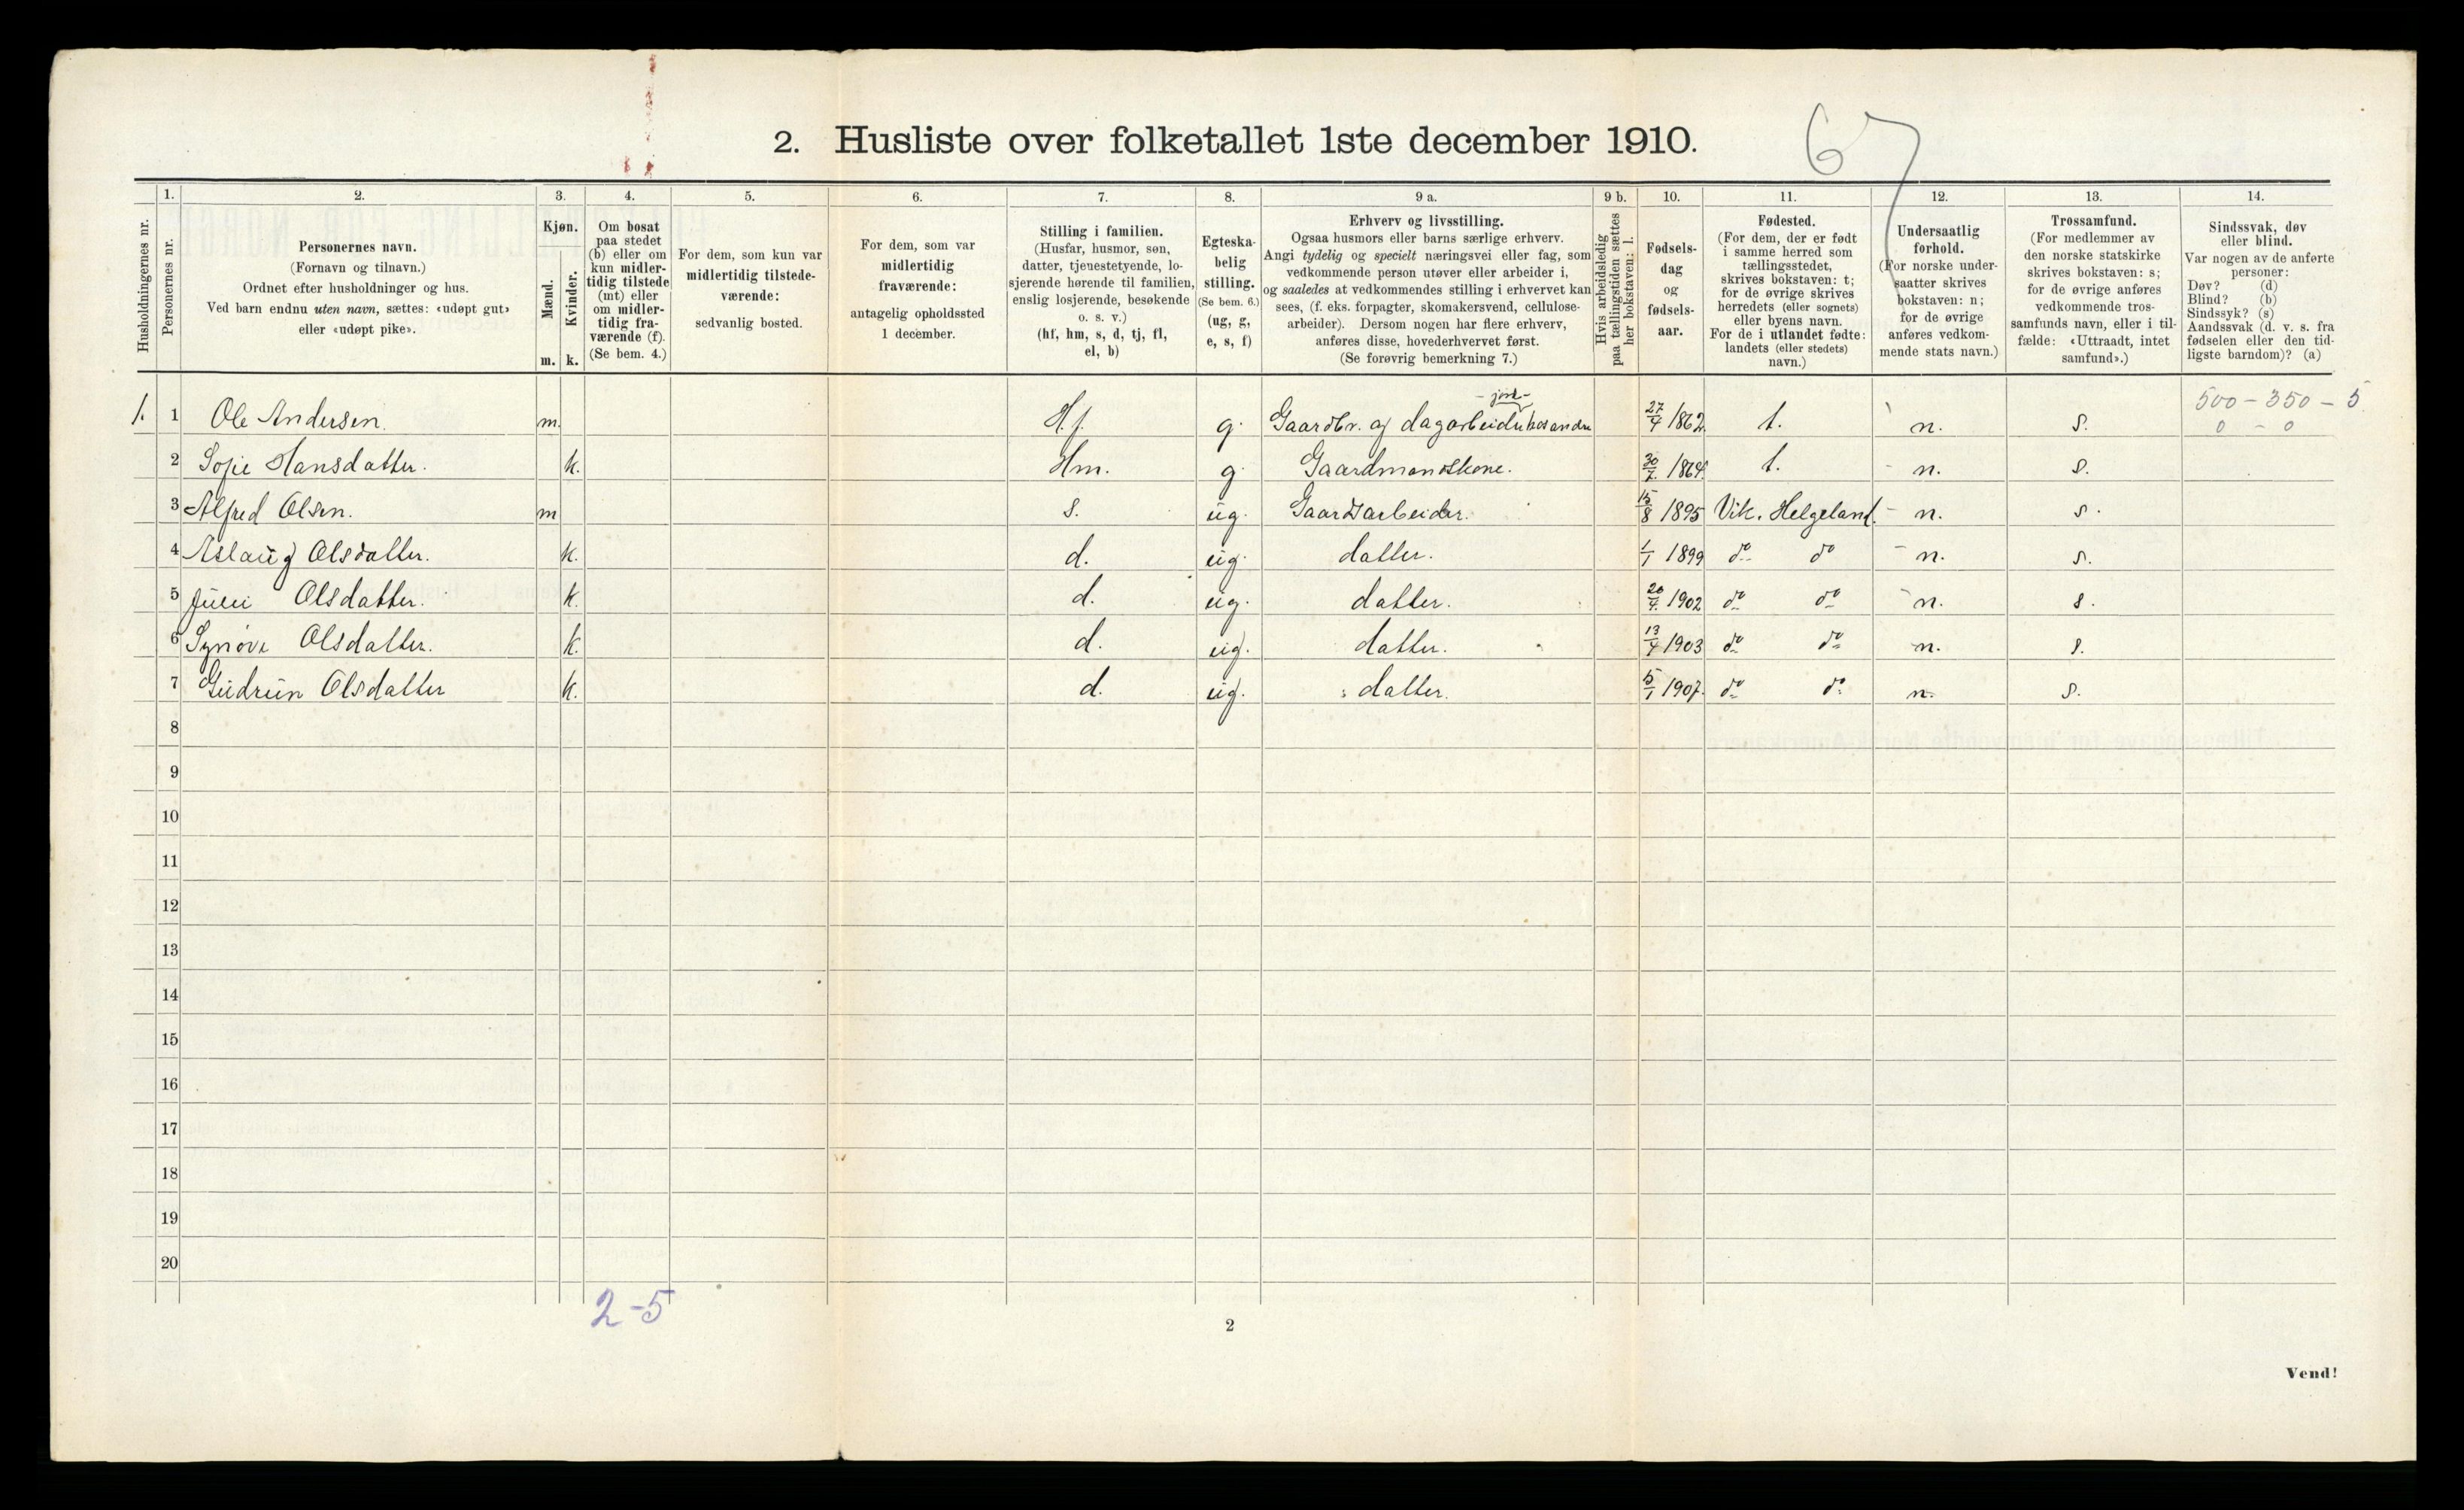 67
2. Husliste over folketallet 1ste december 1910.
Husholdningernes nr.
1. Personernes nr.
2.
Personernes navn.
(Fornavn og tilnavn.)
Ordnet efter husholdninger og hus.
Ved barn endnu uten navn, sættes: «udøpt gut»
eller «udøpt pike».
3.
Kjøn.
Mænd. m.
Kvinder. k.
4.
Om bosat
paa stedet
(b) eller om
kun midler-
tidig tilstede
(mt) eller
om midler-
tidig fra-
værende (f).
(Se bem. 4.)
5.
For dem, som kun var
midlertidig tilstede-
værende:
sedvanlig bosted.
6.
For dem, som var
midlertidig
fraværende:
antagelig opholdssted
1 december.
7.
Stilling i familien.
(Husfar, husmor, søn,
datter, tjenestetyende, lo-
sjerende hørende til familien,
enslig losjerende, besøkende
o. s. v.)
(hf, hm, s, d, tj, fl,
el, b)
8.
Egteska-
belig
stilling.
(Se bem. 6.)
(ug, g,
e, s, f)
9 a.
Erhverv og livsstilling.
Ogsaa husmors eller barns særlige erhverv.
Angi tydelig og specielt næringsvei eller fag, som
vedkommende person utøver eller arbeider i,
og saaledes at vedkommendes stilling i erhvervet kan
sees, (f. eks. forpagter, skomakersvend, cellulose-
arbeider). Dersom nogen har flere erhverv,
anføres disse, hovederhvervet først.
(Se forøvrig bemerkning 7.)
9 b.
Hvis arbeidsledig
paa tællingstiden sættes
her bokstaven: l.
10.
Fødsels-
dag
og
fødsels-
aar.
11.
Fødested.
(For dem, der er født
i samme herred som
tællingsstedet,
skrives bokstaven: t;
for de øvrige skrives
herredets (eller sognets)
eller byens navn.
For de i utlandet fødte:
landets (eller stedets)
navn.)
12.
Undersaatlig
forhold.
(For norske under-
saatter skrives
bokstaven: n;
for de øvrige
anføres vedkom-
mende stats navn.)
13.
Trossamfund.
(For medlemmer av
den norske statskirke
skrives bokstaven: s;
for de øvrige anføres
vedkommende tros-
samfunds navn, eller i til-
fælde: «Uttraadt, intet
samfund».)
14.
Sindssvak, døv
eller blind.
Var nogen av de anførte
personer:
Døv? (d)
Blind? (b)
Sindssyk? (s)
Aandssvak (d. v. s. fra
fødselen eller den tid-
ligste barndom)? (a)
500 - 350 - 5
0 - 0
1. 1 Ole Andersen. m. H.f. g. Gaardbr. og -jord- dagarbeider hos andre 27/4 1862. t. n. s.
2 Sofie Hansdatter. k. Hm. g Gaardmandskone. 30/7. 1864. t. n. s.
3 Alfred Olsen. m s. ug. Gaardsarbeider. 15/8 1895 Vik. Helgeland. n. s.
4 Aslaug Olsdatter. k. d. ug. datter. 1/1 1899 do do n. s.
5 Olsdatter. k. d. ug. datter. 20/4. 1902 do do n. s.
6 Synøve Olsdatter. k. d. ug. datter. 13/4 1903 do do n. s.
7 Gudrun Olsdatter k. d. ug. datter. 5/1 1907. do do n. s.
8
9
10
11
12
13
14
15
16
17
18
19
20
2-5
2
Vend!